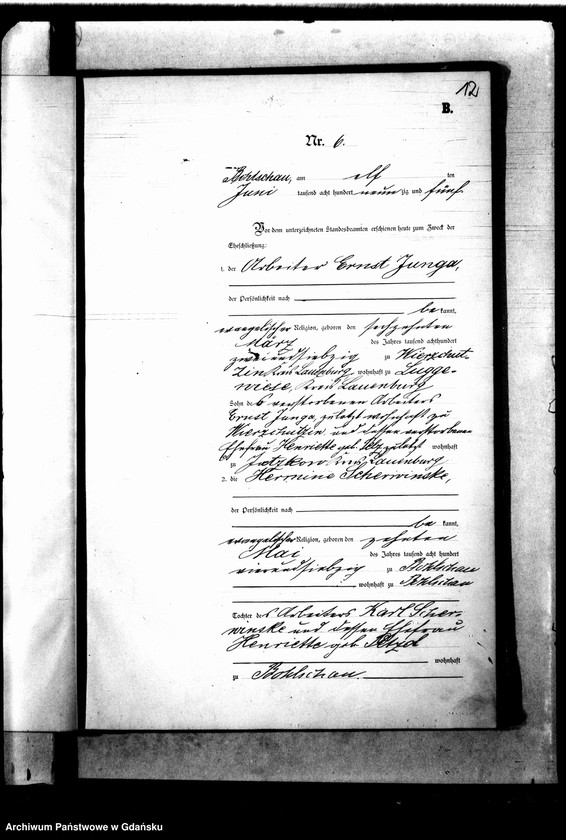 12
B.
Nr. 6.
Bohlschau, am elf ten
Juni tausend acht hundert neun zig und fünf
Vor dem unterzeichneten Standesbeamten erschienen heute zum Zweck der
Eheschließung:
1. der Arbeiter Ernst Junga,
der Persönlichkeit nach
be kannt,
evangelischer Religion, geboren den sechzehnten
März des Jahres tausend achthundert
zweiundsiebzig zu Wierschut-
zin Kreis Lauenburg, wohnhaft zu Lugge-
wiese, Kreis Lauenburg
Sohn des verstorbenen Arbeiters
Ernst Junga, zuletzt wohnhaft zu
Wierschutzin und dessen verstorbenen
Ehefrau Henriette geb. zuletzt wohnhaft
zu Jatzkow Kreis Lauenburg
2. die Hermine Scherwinske,
der Persönlichkeit nach
be kannt,
evangelischer Religion, geboren den zehnten
Mai des Jahres tausend acht hundert
vierundsiebzig zu Bohlschau
wohnhaft zu Bohlschau
Tochter des Arbeiters Karl Scher-
winske und dessen Ehefrau
Henriette geb.
wohnhaft
zu Bohlschau.
Archiwum Państwowe w Gdańsku